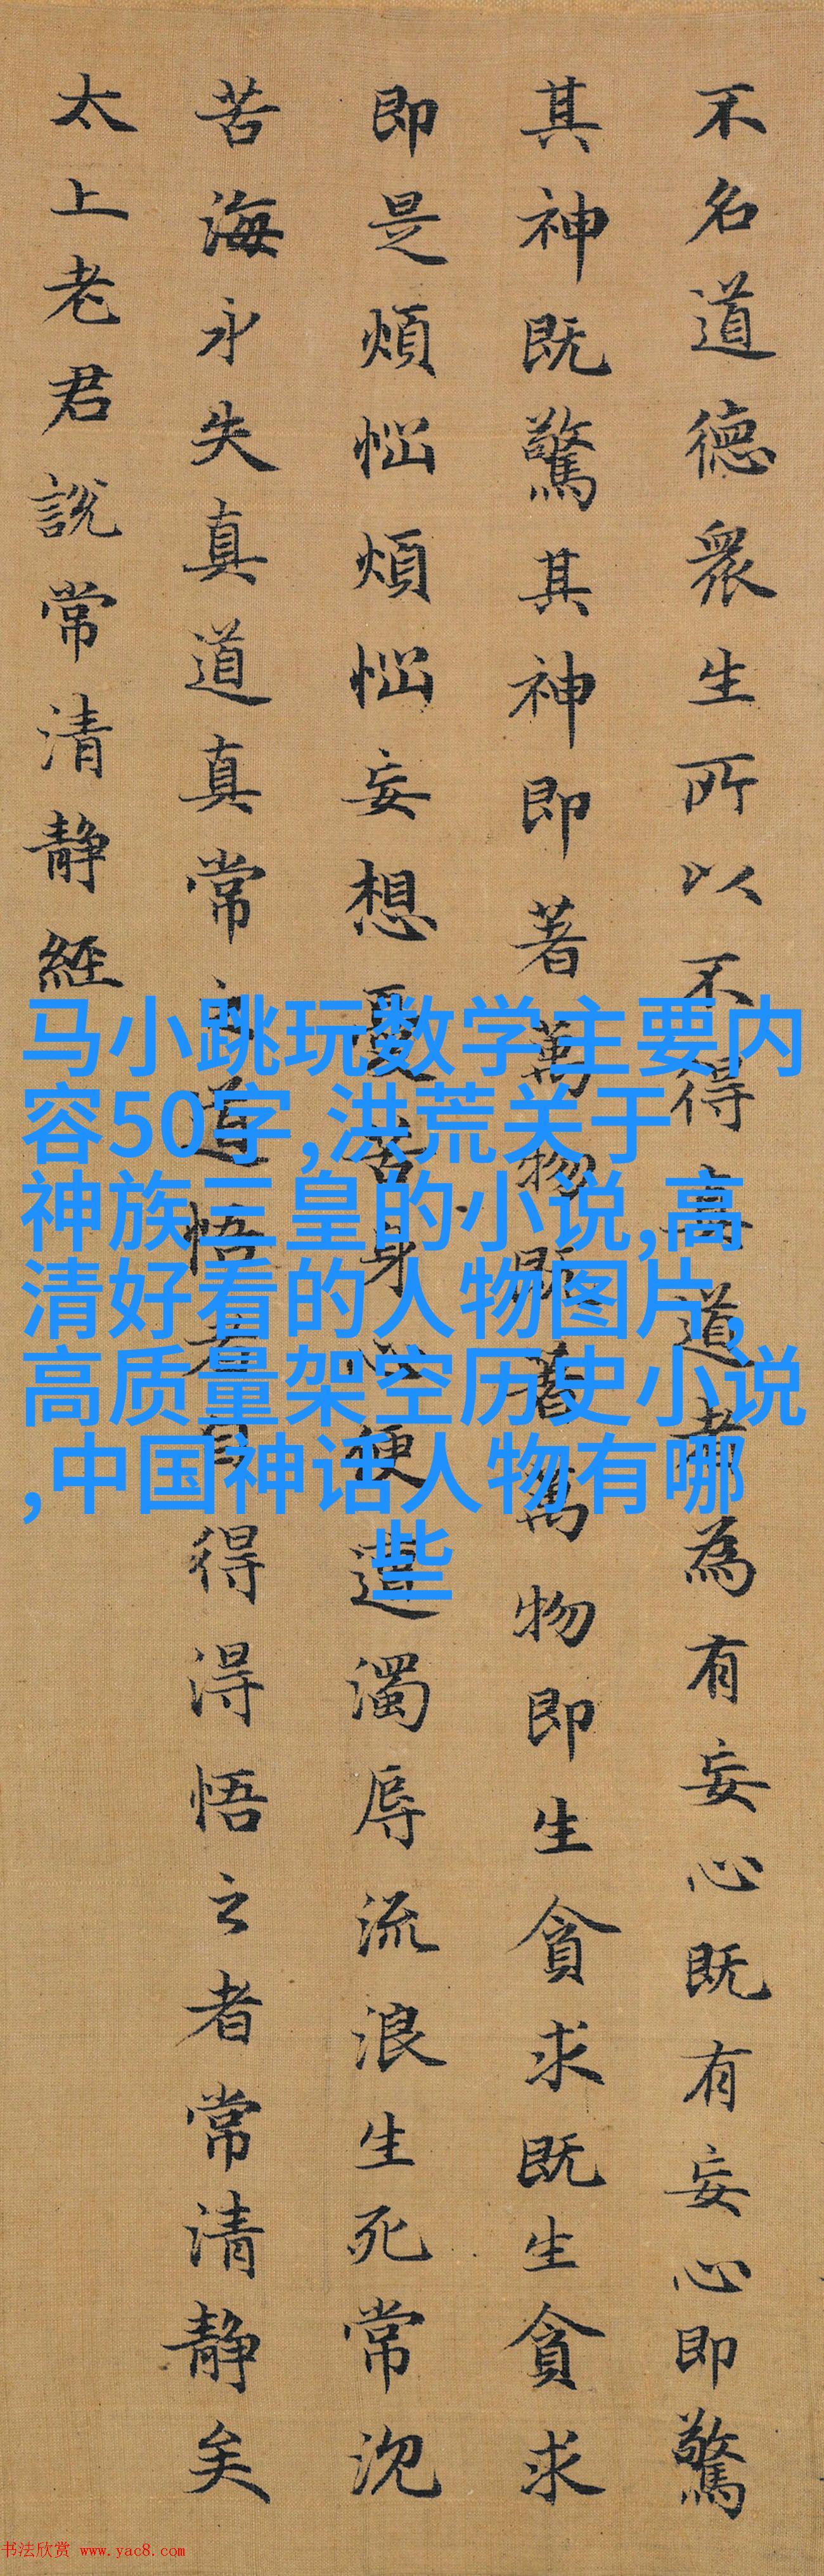 不名道德眾生所以不得真道者為有妄心既有妄心即驚
其神既驚其神即著萬物既著萬物即生貪求既生貪求
即是煩惱煩惱妄想憂苦身心便遭濁辱流浪生死常沉
苦海永失真道真常之道悟者自得得悟之者常清静矣
太上老君説常清静經
马小跳玩数学主要内
容50字,洪荒关于
神族三皇的小说,高
清好看的人物图片,
高质量架空历史小说
,中国神话人物有哪
些
书法欣赏 www.yac8.com